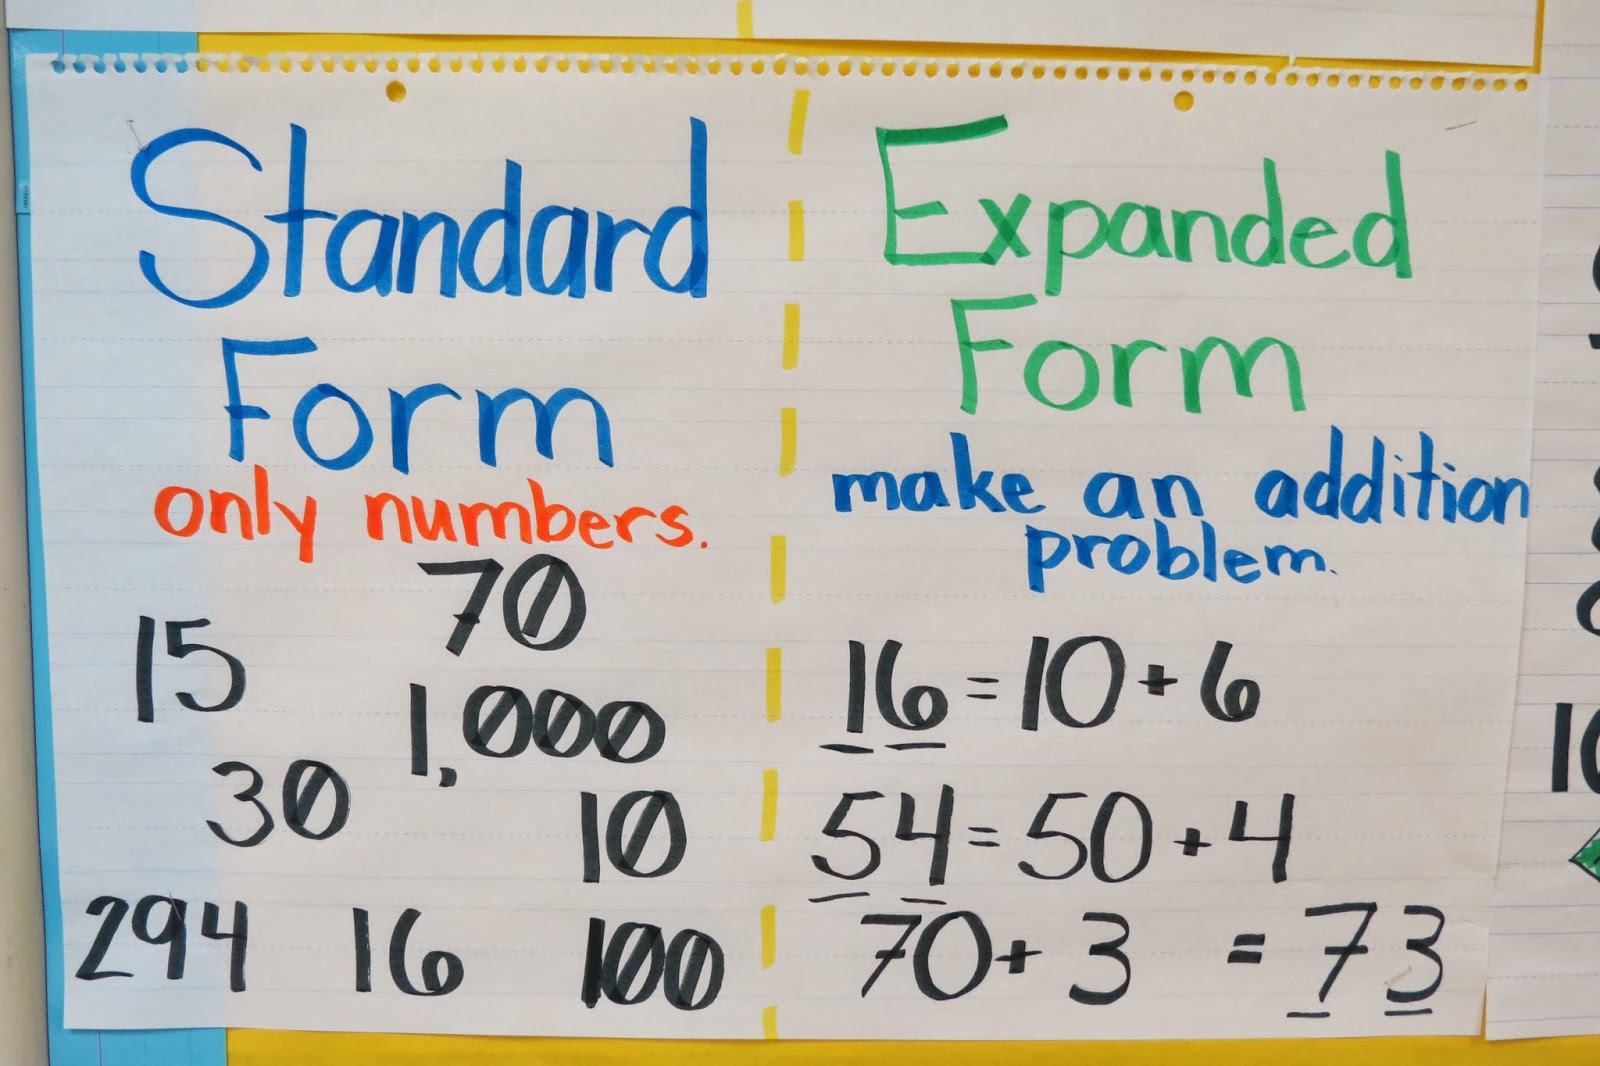 Standard
Form
only numbers.
70
15
1,000
30
10
294 16 100
Expanded
Form
make an addition
problem.
16 = 10 + 6
54 = 50 + 4
70 + 3 = 73